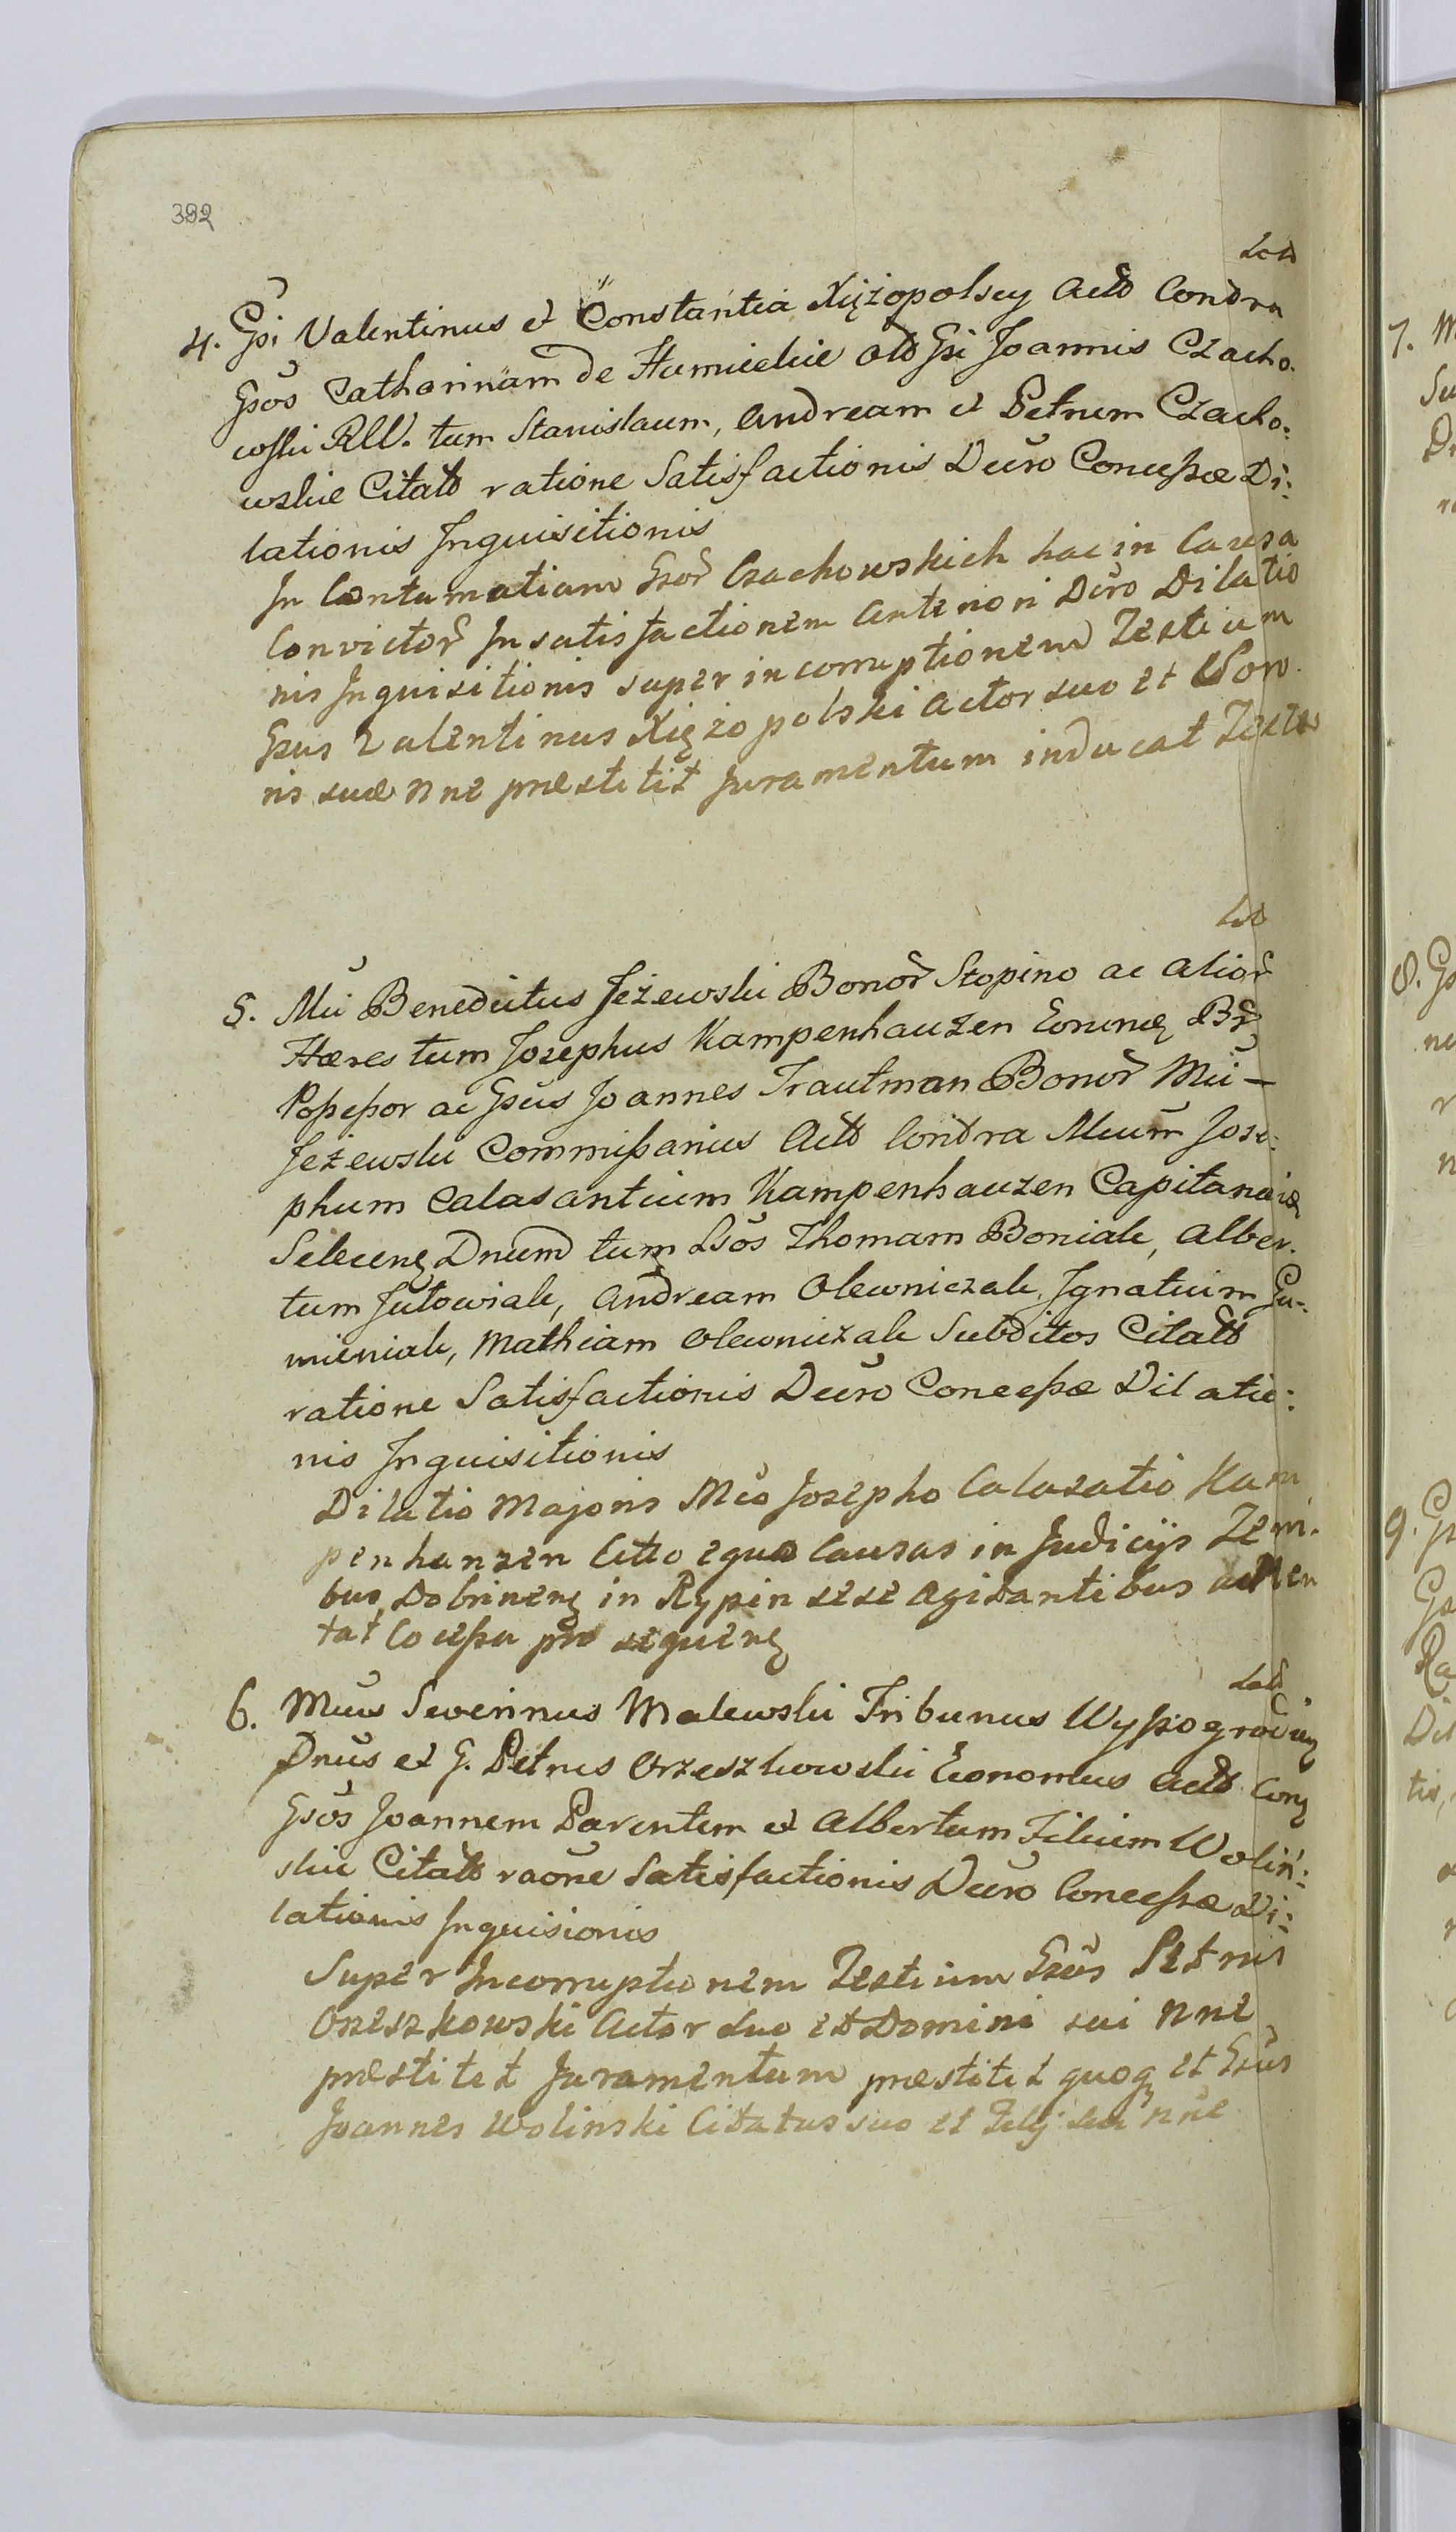 392
Lct
4. Gsi Valentinus et Constantia Xiężopolscy Actt Contra
Gsos Catharinam de Humieckie olt Gsi Joannis Czacho-
wski RVV. tum Stanislaum, Andream et Petrum Czacho:
wskie Citatt ratione Satisfactionis Decro Concessæ Di:
lationis Inquisitionis
In Contumatiam Gsor Czachowskich hac in Causa
Convictor In satisfactionem Anteriori Dcro Dilatio
nis Inquisitionis super incorruptionem Testium
Gsus Valentinus Xiężopolski Actor suo et Uxo
ris suæ nne præstitit Juramentum inducat Testes
Lct
5. Mci Benedictus Jeżewski Bonor Stopino ac alior
Hæres tum Josephus Kampenhauzen Eorundę Br
Possessor ac Gsus Joannes Trautman Bonor Mci –
Jeżewski Commissarius Actt Contra Mcum Jose:
phum Calasantium Kampenhauzen Capitaneię
Selecenę Dnum tum Lsos Thomam Boniak, Alber-
tum Jutowiak, Andream Olewniczak, Ignatium Gu-
mieniak, Mathiam Olewniczak Subditos Citatt
ratione Satisfactionis Decro Concessæ Dilatio:
nis Inquisitionis
Dilatio Majoris Mco Josepho Calasatio Kam
penhanzen Citto equa Causas in Judicijs Terri-
bus Dobrinenę in Rypin sese agitantibus
tat Cocessa pro sequenę
Latę
6. Mcus Severinus Malewski Tribunus Wyszogrodienę
Dnus et G. Petrus Orzeszkowski Economus Actt Conę
Gsos Joannem Parentem et Albertum Filium Woliń:
skie Citatt raone Satisfactionis Decro Concessæ Di:
lationis Inquisionis
Super Incorruptionem Testium Gsus Petrus
Orzeszkowski Actor suo et Domini sui nne
præstitit Juramentum præstitit quoqę et Gsus
Joannes Wolinski Citatus suo et Filij sui nne